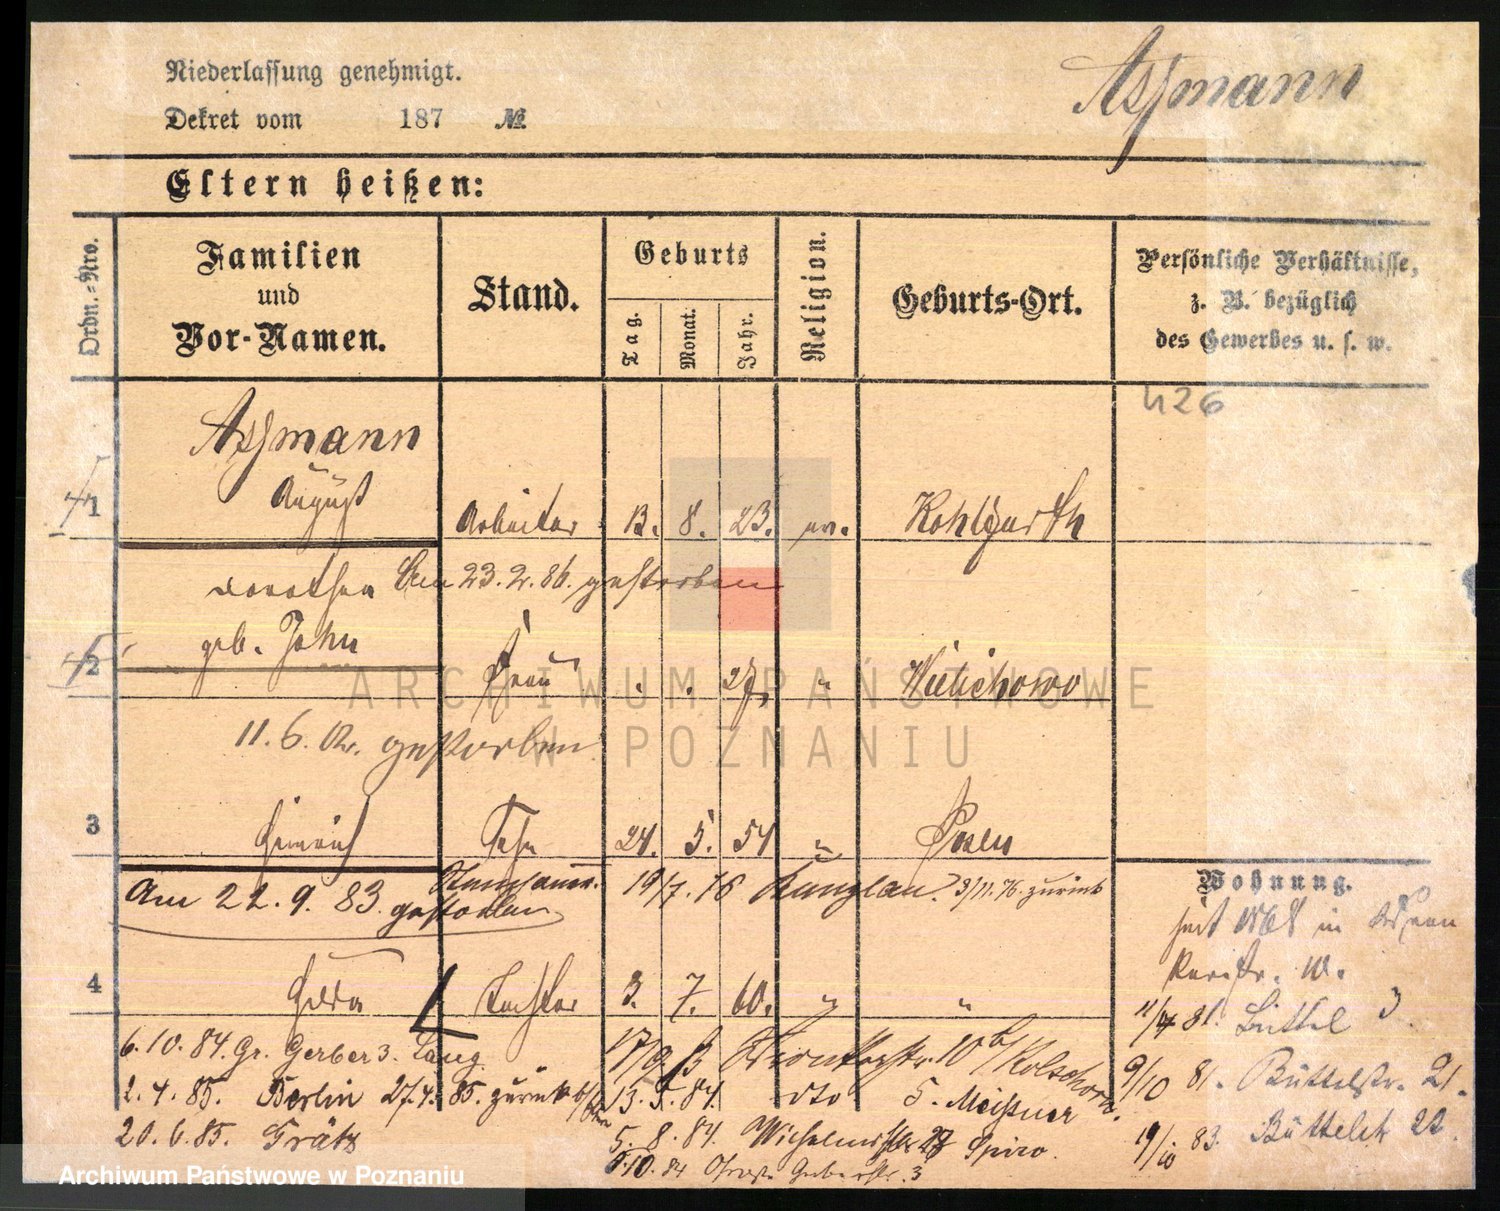 Niederlassung genehmigt.
Aßmann
Dekret vom 187 №
Eltern heißen:
Ordn.-Nro.
Familien
und
Vor-Namen.
Stand.
Geburts
Tag.
Monat.
Jahr.
Religion.
Geburts-Ort.
Persönliche Verhältnisse,
z. B. bezüglich
des Gewerbes u. s. w.
426
Aßmann
1 August Arbeiter 13. 8. 23. ev.
Dorothea Am 23. 2. 86. gestorben
geb. Jahn
2 Frau 27. " Wielichowo
11. 6. gestorben
3 Heinrich Sohn 24. 5. 54 " Posen
Am 22. 9. 83. gestorben
19/7. 76 9/11. 76. zurück
Wohnung.
seit in
4 Tochter 3. 7. 60. " "
11/4 81. Büttel 3.
6. 10. 84. Gr. Gerber 3. Lang
17/9
9/10 81. Büttelstr. 21.
2. 4. 85. Berlin 27.4. 85. zurück
13. 5. 84. dto 5. Meißner
19/10 83. Büttelst 22.
20. 6. 85. Grätz
5. 8. 84. Spiro.
5.10. 84 Gerberstr. 3
ARCHIWUM PAŃSTWOWE
W POZNANIU
Archiwum Państwowe w Poznaniu